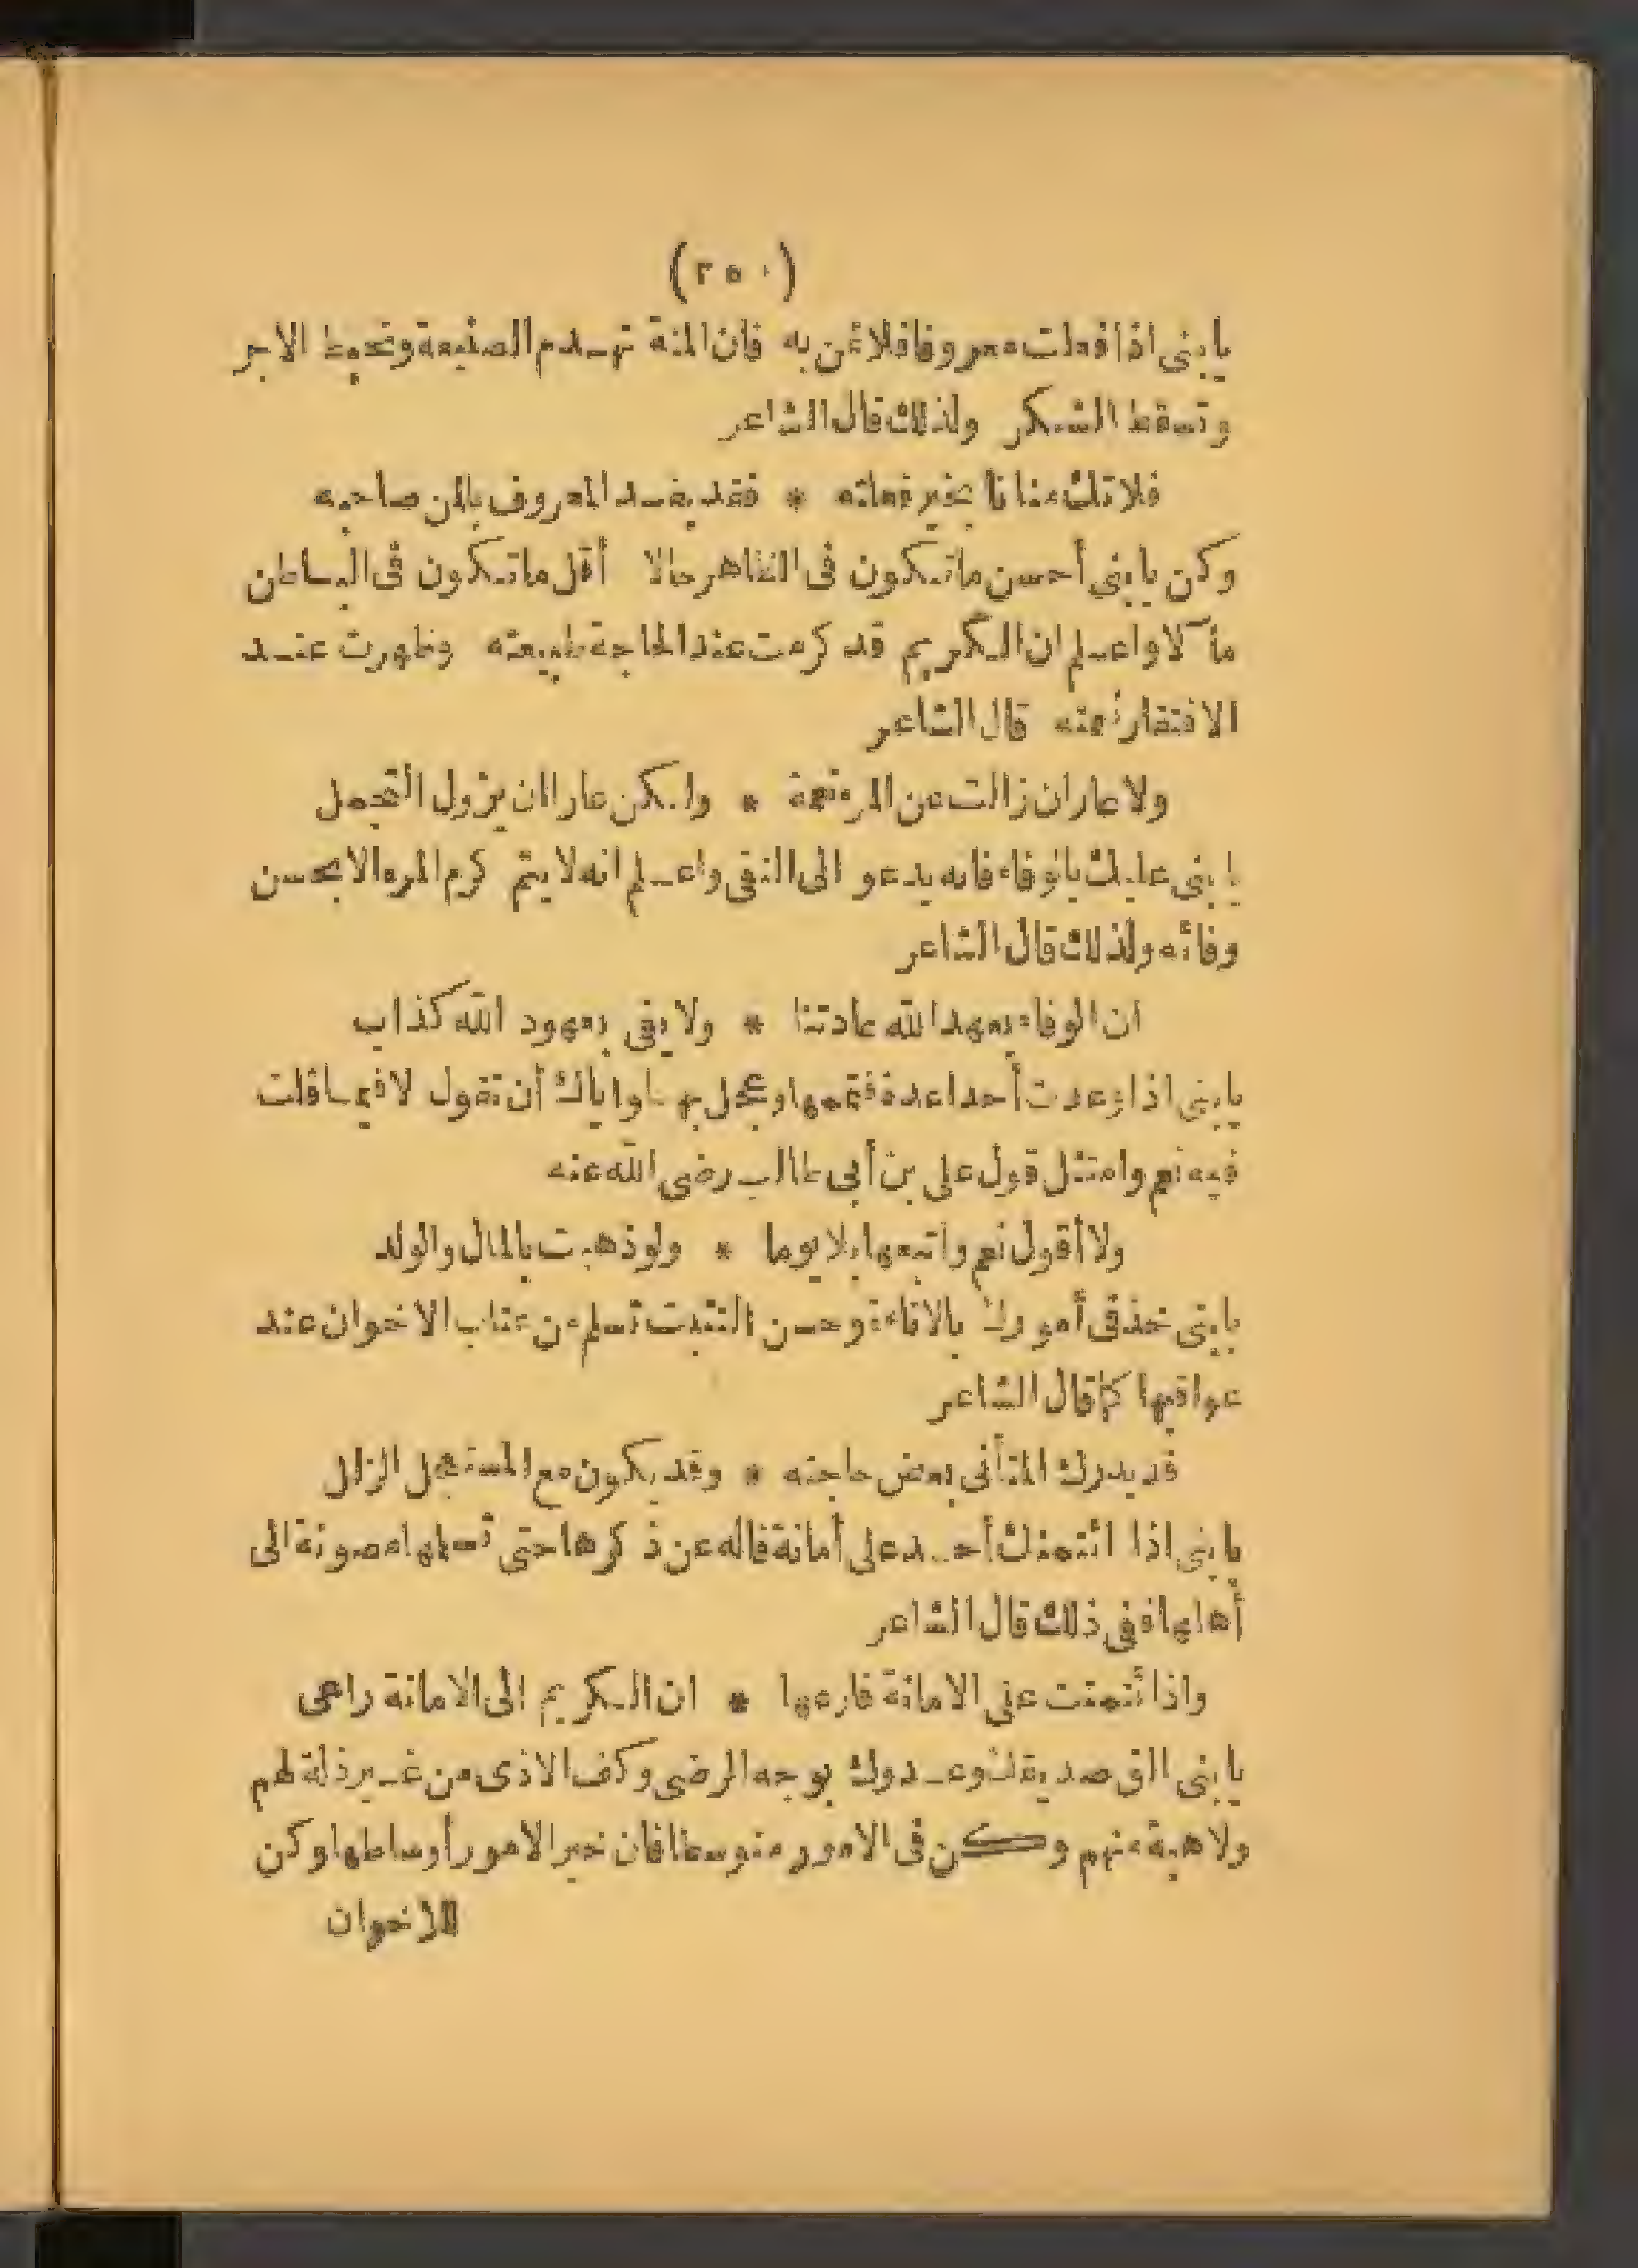 (٢٥٠)
يا بنى اذا فعلت معروفا فلا تمن به فان المنة تهدم الصنيعة وتحبط الاجر
وتسقط الشكر ولذلك قال الشاعر
فلا تك منانا بخير فعلته * فقد يفسد المعروف بالمن صاحبه
وكن يا بنى أحسن ما تكون فى الظاهر حالا أقل ما تكون فى الباطن
مآلا واعلم ان الكريم قد كرمت عند الحاجة طبيعته وظهرت عند
الافتقار نعمته قال الشاعر
ولا عار ان زالت عن المر نعمة * ولكن عارا ان يزول التجمل
يا بنى عليك بالوفاء فانه يدعو الى التقى واعلم انه لا يتم كرم المرء الا بحسن
وفائه ولذلك قال الشاعر
ان الوفاء بعهد الله عادتنا * ولا يفى بعهود الله كذاب
يا بنى اذا وعدت أحدا عدة فتممها وعجل بها واياك أن تقول لا فيما قلت
فيه نعم وامتثل قول على بن أبى طالب رضى الله عنه
ولا أقول نعم واتبعها بلا يوما * ولو ذهبت بالمال والولد
يا بنى خذ فى أمورك بالاناءة وحسن التثبت تسلم من عتاب الاخوان عند
عواقبها كما قال الشاعر
قد يدرك المتأنى بعض حاجته * وقد يكون مع المستعجل الزلل
يا بنى اذا ائتمنك أحد على أمانة فاله عن ذكرها حتى تسلمها مصونة الى
أهلها ففى ذلك قال الشاعر
واذا ائتمنت على الامانة فارعها * ان الكريم الى الامانة راعى
يا بنى الق صديقك وعدوك بوجه الرضى وكف الاذى من غير ذلة لهم
ولا هيبة منهم وكن فى الامور متوسطا فان خير الامور أوساطها وكن
للاخوان